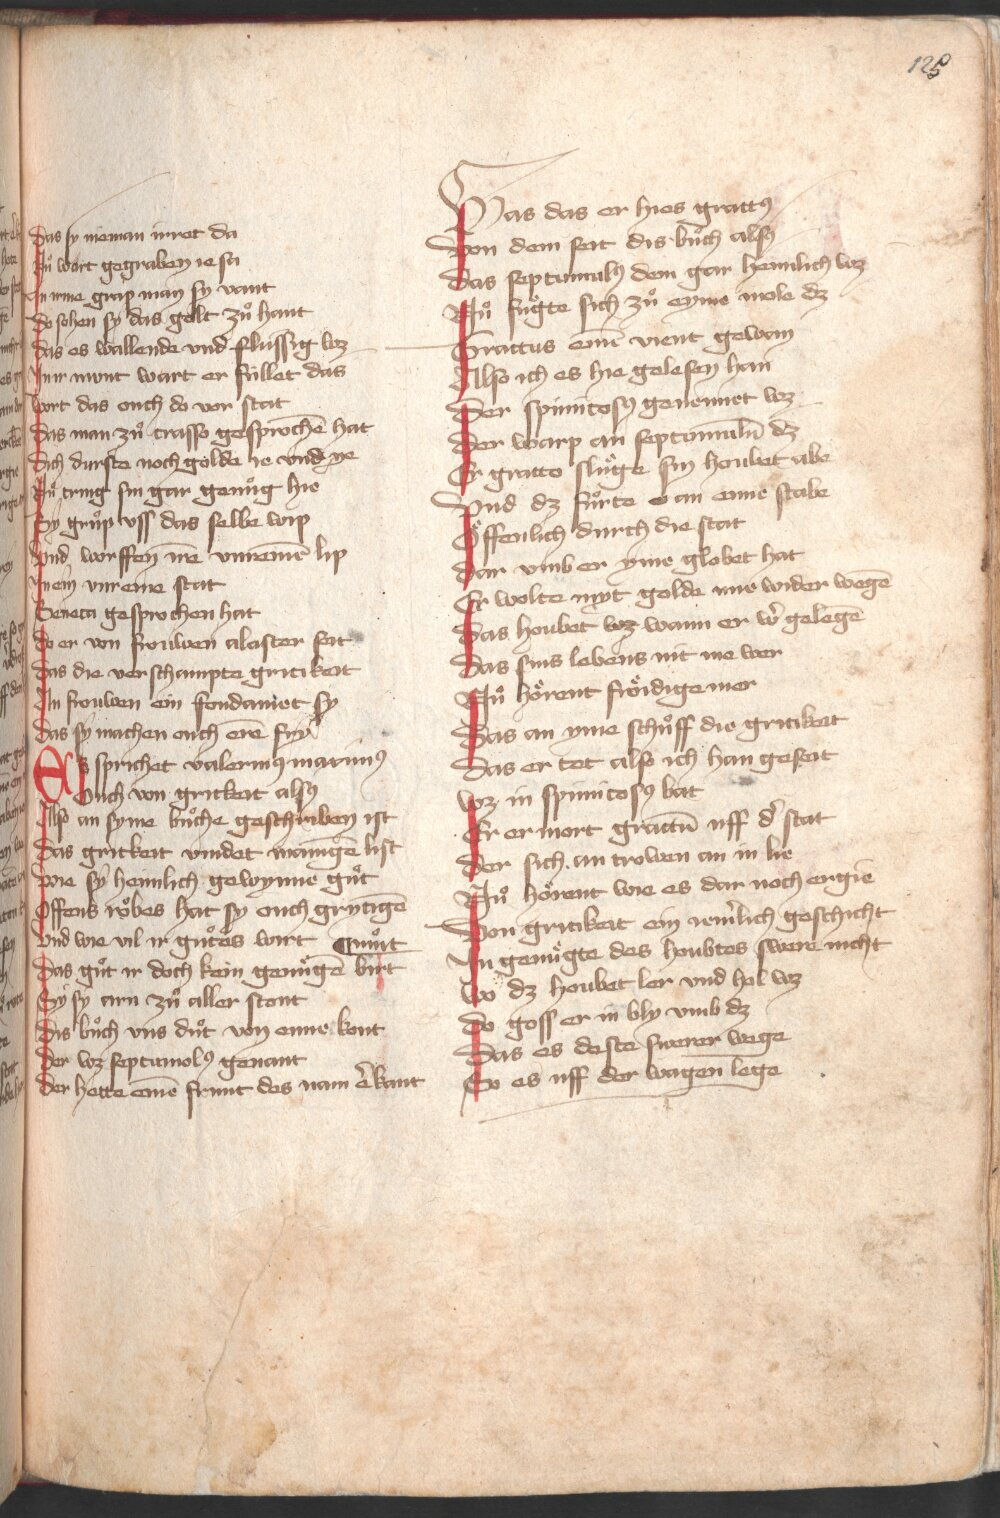 125
Das sy nieman irret da
Nuͦ wart gegraben ie sa
In irme grap man sy vant
do sohen sy das golt zuͦ hant
das es wallende vnd flússig wz
Imr munt wart er fúllet das
wort das ouch do vor stat
Das man zuͦ crasso gesprochē hat
Dich durste noch golde ie vnd ye
Nuͦ tring sin gar genuͦg hie
Sy gruͦp vss das selbe wip
vnd worffen ire vnreinē lip
In ein vnreine stat
Seneca gesprochen hat
do er von frouwen alaster seit
das die verschampte gritikeit
Im frouwen ein fondamēt sy
das sy machen ouch erē fry
Es sprichet valerinꝰ marimꝰ
Ouch von gritkeit alsꝰ
Also an syme buͦche geschriben ist
Das gritkeit vindet manigē list
wie sy heimlich gewynne guͦt
Offens roͮbes hat sy ouch grytigē
vnd wie vil ir guͦtes wirt ¶ muͦt
Das guͦt ir doch kein genuͤgē birt
Sy sy arn zuͦ aller stont
Dis buͦch vns duͦt von eime kont
der wz septimolꝰ genant
der hette einē frúnt des nam er kant
Was das er hies grattꝰ
Von dem seit dis buͦch alsꝰ
Das septimulꝰ dem gar heimlich wz
Nuͦ fuͤgte sich zuͦ eyme mole dz
Grattus einē vient gewan
Also ich es hie gelesen han
Der spimitosꝰ genennet wz
der warp an septomulū dz
Er gratto sluͤge sin houbet abe
Vnd dz fuͦrte an eime stabe
Oͤffenlich durch die stat
dar vmb er yme globet hat
Er wolte myt golde ime wider wegē
Das houbet wz wann er wͤr gelegē
Das sins lebens nit me wer
Nuͦ hoͤrent froͤidige mer
Das an yme schuͦff die gritikeit
das er tet also ich han geseit
wz in spimitosꝰ bat
Er ermort grattū uff der stat
der sich an trowen an in lie
Nuͦ hoͤrent wie es dar noch ergie
Von gritikeit ein iemͤrlich geschicht
In genuͤgte des houbtes swere nicht
wo dz houbet ler vnd hol wz
do goss er in bly vmb dz
Das es deste swerer wege
So es uff der wagen lege